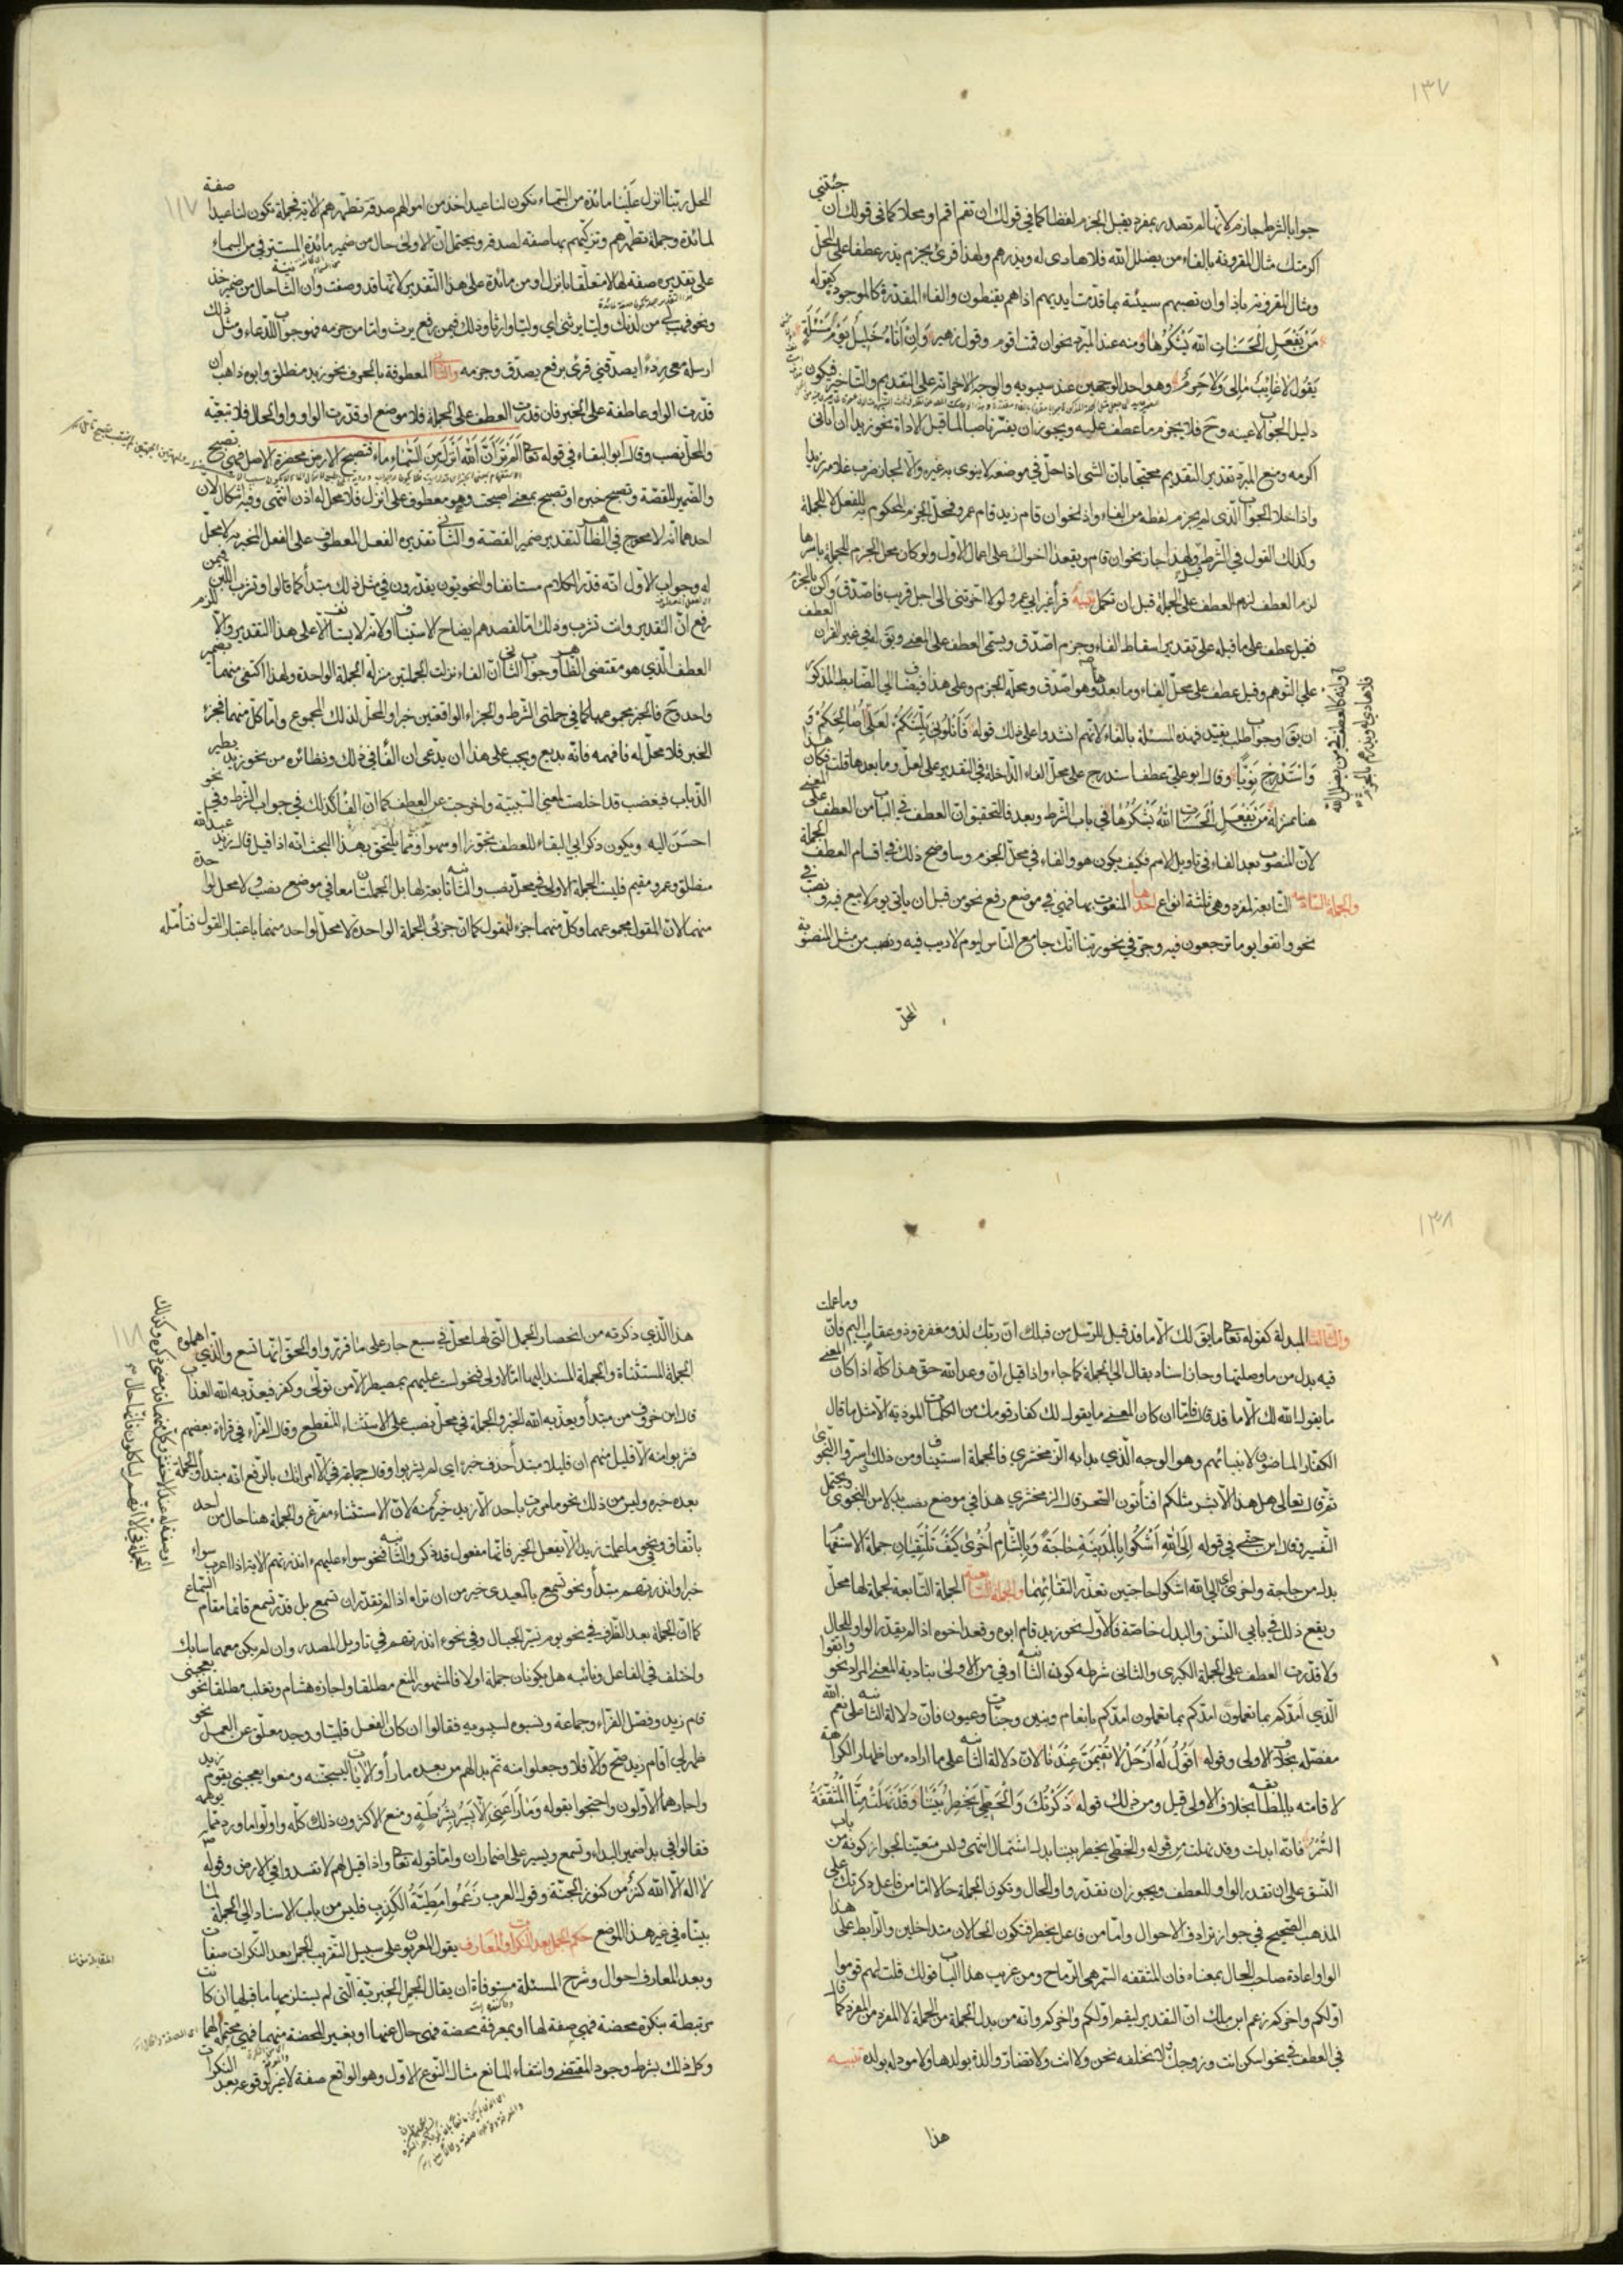 ١٣٧
جوابا لشرط جازم لانها لم تصدر بمفرد يقبل الجزم لفظا كما في قولك ان تقم اقم او محلا كما في قولك ان جئتني
اكرمتك مثال المقرونة بالفاء من يضلل الله فلا هادى له ويذرهم ولهذا قرئ بجزم يذر عطفا على المحل
ومثال المقرونة باذا وان تصبهم سيئة بما قدمت ايديهم اذا هم يقنطون والفاء المقدرة كالموجودة كقوله
مَنْ يَفْعَلِ الْحَسَنَاتِ اللهُ يَشْكُرُهَا ومنه عند المبرد نحو ان قمت اقوم وقول زهير وَاِنْ اَتَاهُ خَلِيلٌ يَوْمَ مَسْئَلَةٍ
يَقُولُ لاغَائِبٌ مَالِى وَلاحَرِمٌ وهو احد الوجهين عند سيبويه والوجه الاخر انه على التقديم والتاخير فيكون
دليل الجواب لا عينه وح فلا يجزم ما عطف عليه ويجوز ان يفسر ناصبا لما قبل الاداة نحو زيدا ان اتانى
اكرمه ومنع المبرد تقدير التقديم محتجا بان الشئ اذا حل في موضعه لا ينوى به غيره والا لجاز ضرب غلامه زيدا
واذا خلا الجواب الذى لم يجزم لفظه من الفاء واذا نحو ان قام زيد قام عمرو فمحل الجزم المحكوم به للفعل لا للجملة
وكذلك القول في الشرط قيل ولهذا جاز نحو ان قام ويقعدا اخواك على اعمال الاول ولو كان محل الجزم للجملة باسرها
لزم العطف على الجملة قبل ان تكمل تنبيه قرأ غير ابي عمرو لولا اخرتنى الى اجل قريب فاصدق واكن بالجزم
فقيل عطف على ما قبله على تقدير اسقاط الفاء وجزم اصدق ويسمى العطف على المعنى ويقال في غير القران العطف
على التوهم وقيل عطف على محل الفاء وما بعدها وهو اصدق ومحله الجزم وعلى هذا فيضاف الى الضابط المذكور
ان يق او جواب طلب يقيد هذه المسئلة بالفاء لانهم انشدوا على ذلك قوله فَاَبْلُونِى بَلِيَّتَكُمْ لَعَلِّى اُصَالِحُكُمْ وَ
وَاَسْتَدْرِجْ نَوَيَّا وقال ابو على عطف استدرج على محل الفاء الداخلة في التقدير على لعل وما بعدها قلت فكان هذا
هنا بمنزلة مَنْ يَفْعَلِ الْحَسَنَاتِ اللهُ يَشْكُرُهَا في باب الشرط وبعد فالتحقيق ان العطف في الباب من العطف على المعنى
لان المنصوب بعد الفاء في تاويل الاسم فكيف يكون هو والفاء في محل الجزم وساوضح ذلك في اقسام العطف
والجملة السادسة التابعة لمفرد وهي ثلثة انواع احدها المنعوت بها فهي في موضع رفع نحو من قبل ان ياتي يوم لا بيع فيه ونصب في
نحو واتقوا يوما ترجعون فيه وجر في نحو ربنا انك جامع الناس ليوم لا ريب فيه ومن مثل المنصوبة
المحل
١١٧
المحل ربنا انزل علينا مائدة من السماء تكون لنا عيدا خذ من اموالهم صدقة تطهرهم الاية فجملة تكون لنا عيدا صفة
لمائدة وجملة تطهرهم وتزكيهم بها صفة لصدقة ويحتمل ان الاولى حال من ضمير مائدة المستتر في من السماء
على تقديره صفة لها لا متعلقا بانزل او من مائدة على هذا التقدير لانها قد وصفت وان الثانية حال من ضمير خذ
ونحو فهب لي من لدنك وليا يرثني اي وليا وارثا وذلك فيمن رفع يرث واما من جزمه فهو جواب للدعاء ومثل ذلك
ارسله معى ردءا يصدقني قرئ برفع يصدق وجزمه والثاني المعطوفة بالحرف نحو زيد منطلق وابوه ذاهب ان
قدرت الواو عاطفة على الخبر فان قدرت العطف على الجملة فلا موضع او قدرت الواو واو الحال فلا تبعية
والمحل نصب وقال ابو البقاء في قوله تعا اَلَمْ تَرَ اَنَّ اللهَ اَنْزَلَ مِنَ السَّمَاءِ مَاءً فتصبح الارض مخضرة الاصل فهي تصبح
والضمير للقصة وتصبح خبره او تصبح بمعنى اصبحت وهو معطوف على انزل فلا محل له اذن انتهى وفيه اشكالان
احدهما انه لا محوج في الظاهر لتقدير ضمير القصة والثاني تقديره الفعل المعطوف على الفعل المخبر به لا محل
له وجواب الاول انه قد قدر الكلام مستانفا والنحويون يقدرون في مثل ذلك مبتدأ كما قالوا في وتشرب اللبن فيمن
رفع ان التقدير وانت تشرب وذلك اما لقصدهم ايضاح الاستيناف او لانه لا يستانف الا على هذا التقدير والا لزم
العطف الذي هو مقتضى الظاهر وجواب الثاني ان الفاء نزلت الجملتين منزلة الجملة الواحدة ولهذا اكتفى منهما بضمير
واحد وح فالخبر مجموعهما كما في جملتى الشرط والجزاء الواقعتين خبرا والمحل لذلك المجموع واما كل منهما فجزء
الخبر فلا محل له فافهمه فانه بديع ويجب على هذا ان يدعى ان الفاء في ذلك ونظائره من نحو زيد يطير
الذباب فيغضب قد اخلصت لمعنى السببية واخرجت عن العطف كما ان الفاء كذلك في جواب الشرط وفي نحو
احسن اليه ويكون ذكر ابي البقاء للعطف تجوزا او سهوا ومما يلحق بهذا البحث انه اذا قيل قال زيد عبد الله
منطلق وعمرو مقيم فليست الجملة الاولى في محل نصب والثانية تابعة لها بل الجملتان معا في موضع نصب ولا محل لواحدة
منهما لان المقول مجموعهما وكل منهما جزء للمقول كما ان جزئى الجملة الواحدة لا محل لواحد منهما باعتبار القول فتأمله
١٣٨
والثالثا المبدلة كقوله تعا ما يقال لك الا ما قد قيل للرسل من قبلك ان ربك لذو مغفرة وذو عقاب اليم فان وما عملت
فيه بدل من ما وصلتها وجاز اسناد يقال الى الجملة كما جاء واذا قيل ان وعد الله حق هذا كله اذا كان المعنى
ما يقول الله لك الا ما قد قال فاما ان كان المعنى ما يقول لك كفار قومك من الكلمات الموذية الا مثل ما قال
الكفار الماضون لانبيائهم وهو الوجه الذي بدا به الزمخشري فالجملة استيناف ومن ذلك واسروا النجوى
ثم قال تعالى هل هذا الا بشر مثلكم افتأتون السحر قال الزمخشري هذا في موضع نصب بدلا من النجوى ويحتمل
التفسير وقال ابن جنى في قوله اِلَى اللهِ اَشْكُو بِالْمَدِينَةِ حَاجَةً وَبِالشَّامِ اُخْرَىٰ كَيْفَ تَلْتَقِيَانِ جملة الاستفهام
بدل من حاجة واخرى اي الى الله اشكوا حاجتين تعذر التقائهما والجملة السابعة الجملة التابعة لجملة لها محل
ويقع ذلك في بابي النسق والبدل خاصة فالاول نحو زيد قام ابوه وقعد اخوه اذا لم يقدر الواو للحال
ولا قدرت العطف على الجملة الكبرى والثانى شرطه كون الثانية اوفى من الاولى بتادية المعنى المراد نحو واتقوا
الذي امدكم بما تعلمون امدكم بانعام وبنين وجنات وعيون فان دلالة الثانية على نعم الله
مفصلة بخلاف الاولى وقوله اَقُولُ لَهُ ارْحَلْ لا تُقِيمَنَّ عِنْدَنَا لان دلالة الثانية على ما اراده من اظهار الكراهة
لاقامته بالمطابقة بخلاف الاولى قيل ومن ذلك قوله ذَكَرْتُكَ وَالْخَطِّىُّ يَخْطِرُ بَيْنَنَا وَقَدْ نَهِلَتْ مِنَّا الْمُثَقَّفَةُ
السُّمْرُ فانه ابدلت وقد نهلت من قوله والخطى يخطر بيننا بدل اشتمال انتهى وليس متعينا لجواز كونه من باب
النسق على ان تقدر الواو للعطف ويجوز ان تقدر واو الحال وتكون الجملة حالا اما من فاعل ذكرتك على
المذهب الصحيح في جواز ترادف الاحوال واما من فاعل يخطر فتكون الحالان متداخلين والرابط على هذا
الواو اعادة صاحب الحال بمعناه فان المثقفه السمر هي الرماح ومن غريب هذا الباب قولك قلت لهم قوموا
اولكم واخركم زعم ابن ملك ان التقدير ليقم اولكم واخركم وانه من بدل الجملة من الجملة لا المفرد من المفرد كما قال
في العطف في نحو اسكن انت وزوجك لا نخلفه نحن ولا انت ولا تضار والدة بولدها ولا مولود له بولده تنبيه
هذا
١١٨
هذا الذي ذكرته من انحصار الجمل التى لها محل في سبع جار على ما قرروا والحق انها تسع والذي اهملوه
الجملة المستثناة والجملة المسند اليها اما الاولى فنحو لست عليهم بمصيطر الا من تولى وكفر فيعذبه الله العذاب
قال ابن خروف من مبتدأ ويعذبه الله الخبر والجملة في محل نصب على الاستثناء المنقطع وقال الفراء في قراءة بعضهم
فشربوا منه الا قليل منهم ان قليلا مبتدأ حذف خبره اى لم يشربوا وقال جماعة في الا امراتك بالرفع انه مبتدأ والجملة
بعده خبره وليس من ذلك نحو ما مررت باحد الا زيد خير منه لان الاستثناء مفرغ والجملة هنا حال من احد
باتفاق ونحو ما علمت زيدا الا يفعل الخير فانها مفعول قد ذكر والثانية نحو سواء عليهم ءانذرتهم الاية اذا اعرب سواء
خبرا وانذرتهم مبتدأ ونحو تسمع بالمعيدى خير من ان تراه اذا لم تقدر ان تسمع بل قدر تسمع قائما مقام السماع
كما ان الجملة بعد الظرف في نحو يوم نسير الجبال وفي نحو ءانذرتهم في تاويل المصدر وان لم يكن معهما سابك
واختلف في الفاعل ونائبه هل يكونان جملة او لا فالمشهور المنع مطلقا واجازه هشام وثعلب مطلقا نحو يعجبنى
قام زيد وفصل الفراء وجماعة ونسبوه لسيبويه فقالوا ان كان الفعل قلبيا ووجد معلق عن العمل نحو
ظهر لي اقام زيد صح والا فلا وجعلوا منه ثم بدا لهم من بعد ما رأوا الايات ليسجننه ومنعوا يعجبنى يقوم زيد
واجازهما الاولون واحتجوا بقوله وَمَا رَاعَنِى اِلاّ يَسِيرُ بِشُرْطَةٍ ومنع الاكثرون ذلك كله واولوا ما ورد مما يوهمه
فقالوا في بدا ضمير البداء وتسمع ويسير على اضمار ان واما قوله تعا واذا قيل لهم لا تفسدوا في الارض وقوله
لا اله الا الله كنز من كنوز الجنة وقول العرب زَعَمُوا مَطِيَّةُ الْكَذِبِ فليس من باب الاسناد الى الجملة لما
بيناه في غير هذا الموضع حكم الجمل بعد النكرات والمعارف يقول المعربون على سبيل التقريب الجمل بعد النكرات صفات
وبعد المعارف احوال وشرح المسئلة مستوفاة ان يقال الجمل الخبرية التي لم يستلزمها ما قبلها ان كانت
مرتبطة بنكرة محضة فهي صفة لها او بمعرفة محضة فهي حال عنها او بغير المحضة منهما فهي محتملة لهما
وكل ذلك بشرط وجود المقتضى وانتفاء المانع مثال النوع الاول وهو الواقع صفة لا غير لوقوعه بعد النكرات